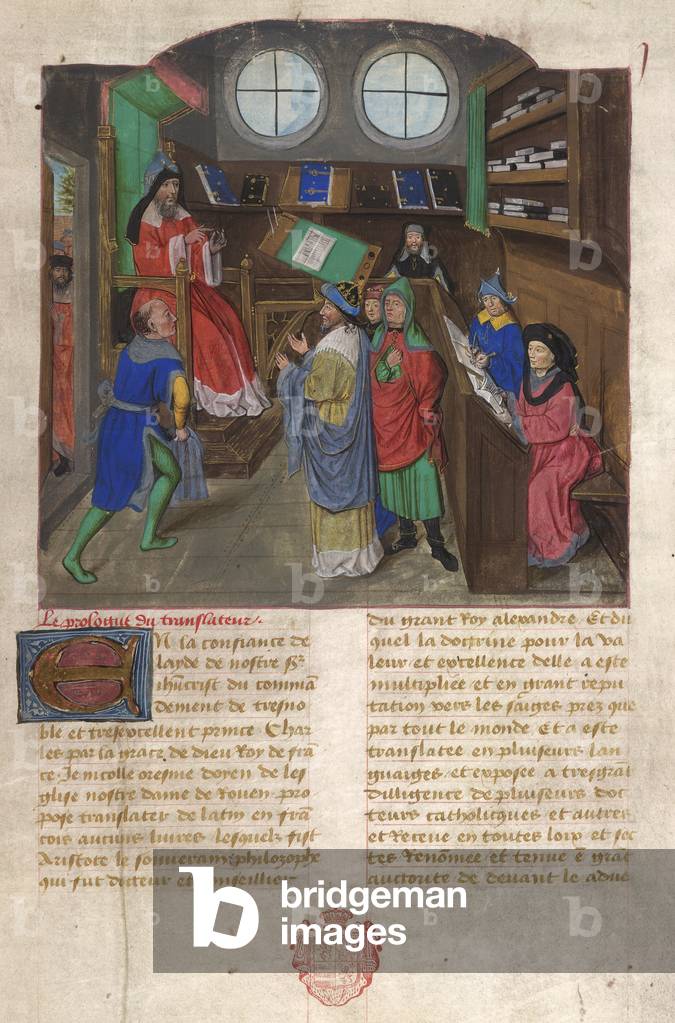 Le prologue du translateur.
En la confiance de
layde de nostre Sr
ihucrist du comman
dement de tresno
ble et tresexcellent prince Char
les par la grace de dieu Roy de fran
ce. Je nicolle oresme doyen de les
glise nostre dame de Rouen. pro
pose translater de latin en fran
cois aucuns livres lesquelz fist
Aristote le souverain philozophe
qui fut docteur et conseillier
du grant Roy alexandre. Et du
quel la doctrine pour la va
leur et excellence delle a este
multipliee et en grant repu
tation vers les saiges prez que
par tout le monde. Et a este
translatee en pluiseurs lan
guaiges. et exposee a tresgrant
dilligence de pluiseurs doc
teurs catholicques et autres
et Receue en toutes loix et sec
tes Renomee et tenue en grant
auctorite de devant le adve
bridgeman
images